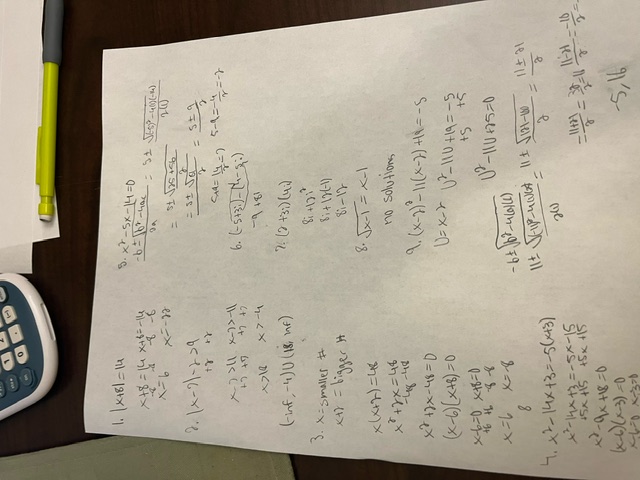 1. |x+8|=14
x+8=14 x+8=-14
-8 -8 -8 -8
x=6 x=-22
2. |x-7|-2>9
+2 +2
x-7>11 x-7>-11
+7 +7 +7 +7
x>18 x>-4
(-inf,-4)U(18,inf)
3. x=smaller #
x+2 = bigger #
x(x+2)=48
x²+2x=48
-48 -48
x²+2x-48=0
(x-6)(x+8)=0
x-6=0 x+8=0
+6 +6 -8 -8
x=6 x=-8
8
4. x²-14x+3=-5(x+3)
x²-14x+3=-5x-15
+5x+15 +5x+15
x²-9x+18=0
(x-6)(x-3)=0
x-6=0 x-3=0
5. x²-5x-14=0
-b±√b²-4ac/2a = 5±√(-5)²-4(1)(-14)/2(1)
= 5±√25+56/2
= 5±√81/2 = 5±9/2
5+9=14/2=7 5-9=-4/2=-2
6. (-5+3i)-(4-5i)
-9+8i
7. (2+3i)(4i)
8i+12i²
8i+12(-1)
8i-12
8. √x-1=x-1
no solutions
9. (x-2)²-11(x-2)+19=-5
U=x-2 U²-11U+19=-5
+5 +5
U²-11U+25=0
-b±√b²-4(a)(c)
11±√(-11)²-4(1)(25)/2(1) = 11±√121-100/2 = 11±21/2
=11+21/2=32/2 11-21/2=-10/2=
-5,16